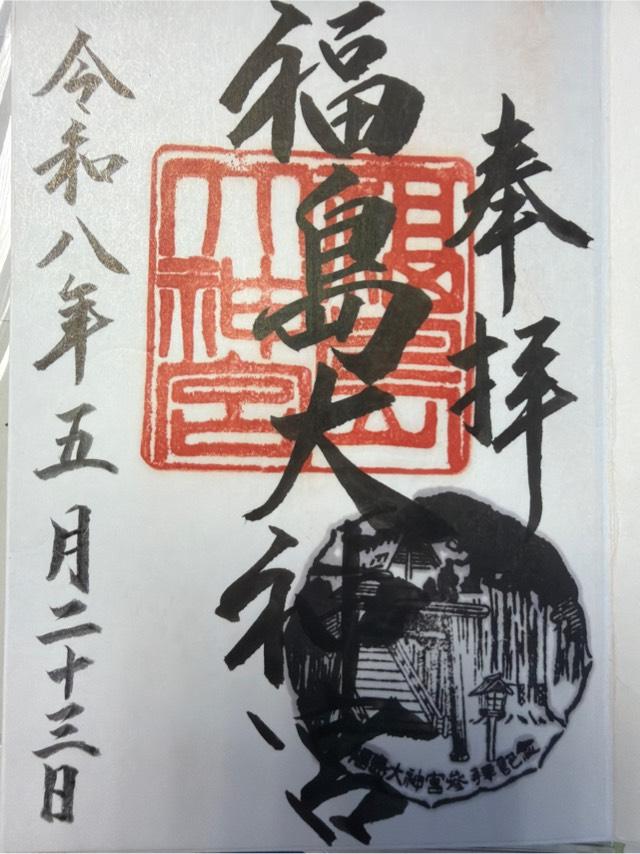 奉拝
福島大神宮
福島大神宮
福島大神宮参拝記念
令和八年五月二十三日